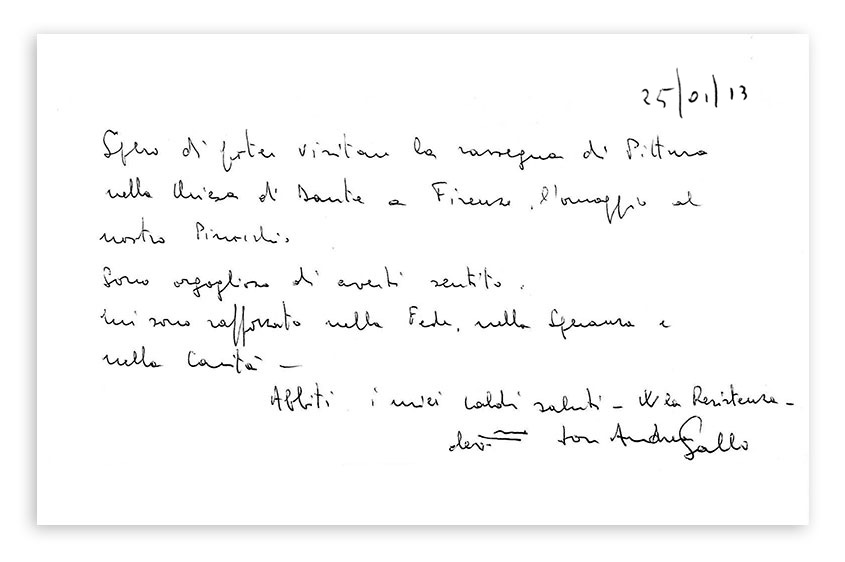 25/01/13
Spero di poter visitare la rassegna di Pittura
nella Chiesa di Dante a Firenze, l'omaggio al
nostro Pinocchio.
Sono orgoglioso di averti sentito.
Mi sono rafforzato nella Fede, nella Speranza e
nella Carità –
Abbiti i miei caldi saluti – W la Resistenza –
dev. don Andrea Gallo